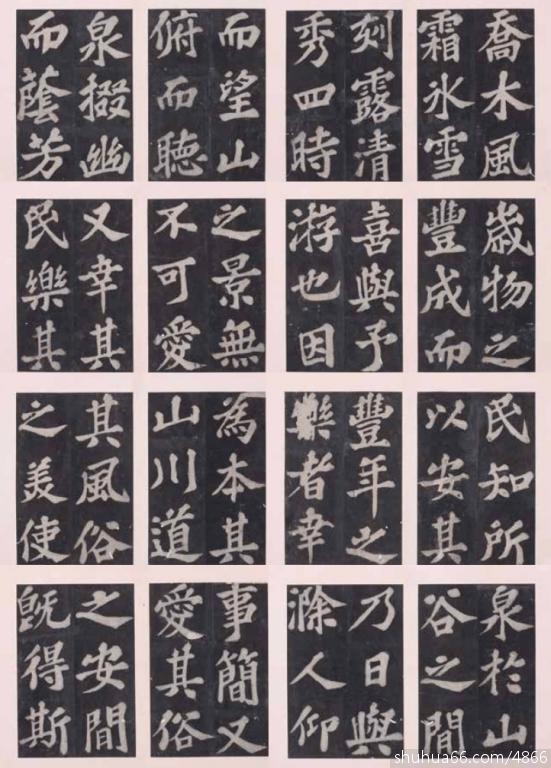 喬木風
霜氷雪
刻露清
秀四時
而望山
俯而聴
泉掇幽
而蔭芳
歲物之
豐成而
喜與予
游也因
之景無
不可愛
又幸其
民樂其
民知所
以安其
豐年之
樂者幸
為本其
山川道
其風俗
之美使
泉於山
谷之間
乃日與
滁人仰
事簡又
愛其俗
之安間
既得斯
shuhua66.com/4866